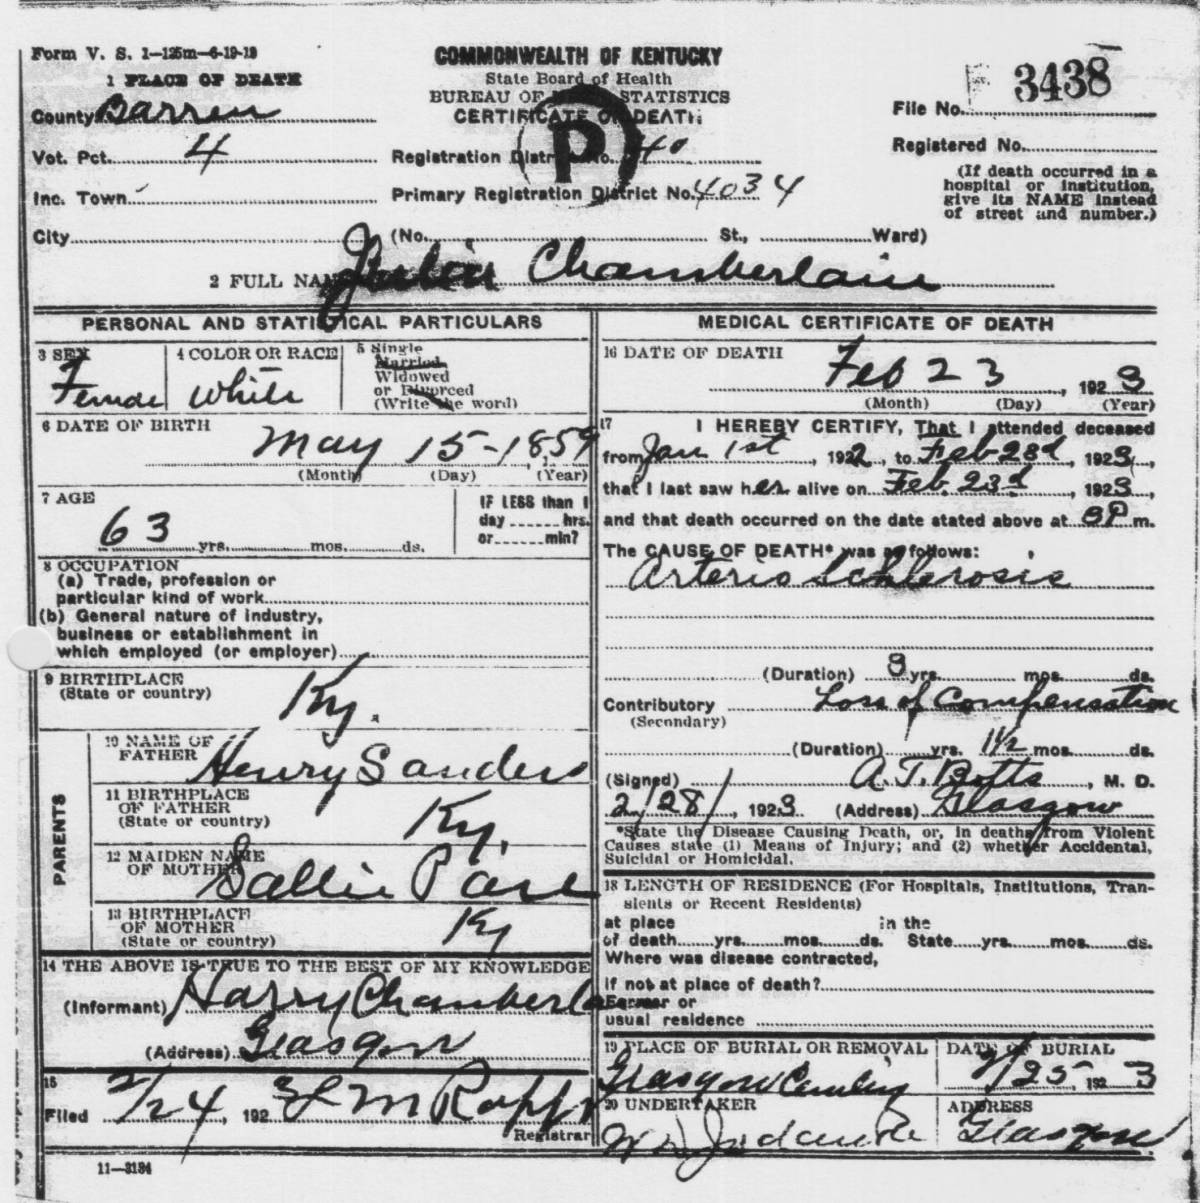 Form V. S. 1—125m—6-19-19
COMMONWEALTH OF KENTUCKY
State Board of Health
BUREAU OF STATISTICS
CERTIFICATE OF DEATH
P
1 PLACE OF DEATH
County Barren
Vot. Pct. 4
Inc. Town
City
Registration District No. 40
Primary Registration District No. 4034
(No. St., Ward)
File No. 3438
Registered No.
(If death occurred in a
hospital or institution,
give its NAME instead
of street and number.)
2 FULL NAME Julia Chamberlain
PERSONAL AND STATISTICAL PARTICULARS
3 SEX
Female
4 COLOR OR RACE
White
5 Single
Married
Widowed
or Divorced
(Write the word)
6 DATE OF BIRTH
May 15-1859
(Month) (Day) (Year)
7 AGE
63 yrs. mos. ds.
IF LESS than 1
day hrs.
or min?
8 OCCUPATION
(a) Trade, profession or
particular kind of work
(b) General nature of industry,
business or establishment in
which employed (or employer)
9 BIRTHPLACE
(State or country)
Ky.
PARENTS
10 NAME OF
FATHER
Henry Sanders
11 BIRTHPLACE
OF FATHER
(State or country)
Ky.
12 MAIDEN NAME
OF MOTHER
Sallie
13 BIRTHPLACE
OF MOTHER
(State or country)
Ky
14 THE ABOVE IS TRUE TO THE BEST OF MY KNOWLEDGE
(Informant) Harry Chamberla
(Address) Glasgow
15
Filed 2/24, 1923
Registrar
11—3184
MEDICAL CERTIFICATE OF DEATH
16 DATE OF DEATH
Feb 23, 1923
(Month) (Day) (Year)
17 I HEREBY CERTIFY, That I attended deceased
from Jan 1st, 1922, to Feb 23d, 1923,
that I last saw her alive on Feb. 23d, 1923,
and that death occurred on the date stated above at 3P m.
The CAUSE OF DEATH* was as follows:
Arterio Schlerosis
(Duration) 3 yrs. mos. ds.
Contributory Loss of Compensation
(Secondary)
(Duration) yrs. 1½ mos. ds.
(Signed) A. T. Botts, M. D.
2/28/, 1923 (Address) Glasgow
*State the Disease Causing Death, or, in deaths from Violent
Causes state (1) Means of Injury; and (2) whether Accidental,
Suicidal or Homicidal.
18 LENGTH OF RESIDENCE (For Hospitals, Institutions, Tran-
sients or Recent Residents)
at place in the
of death yrs. mos. ds. State yrs. mos. ds.
Where was disease contracted,
if not at place of death?
Former or
usual residence
19 PLACE OF BURIAL OR REMOVAL
Glasgow
DATE OF BURIAL
2/25, 1923
20 UNDERTAKER
ADDRESS
Glasgow